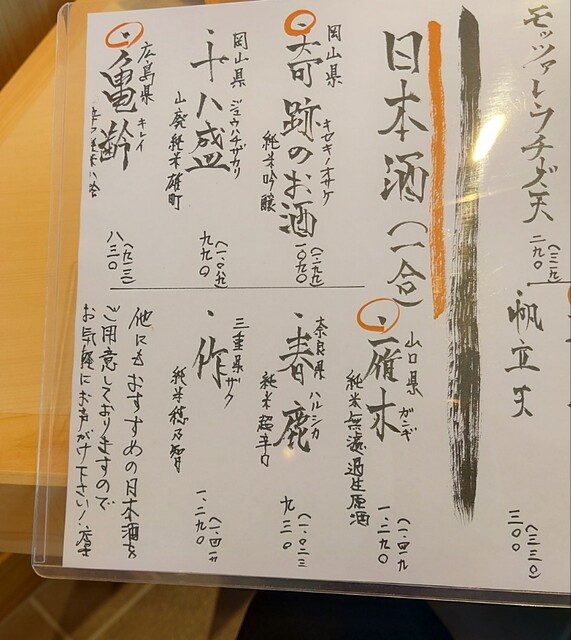 モッツァレラチーズ天
二九〇
(三一九)
・帆立天
三〇〇
(三三〇)
日本酒(一合)
岡山県
・奇跡のお酒
キセキノオサケ
純米吟醸
一〇九〇
(一、一九九)
岡山県
・十八盛
ジュウハチザカリ
山廃純米雄町
九九〇
(一、〇八九)
広島県
・亀齢
キレイ
八三〇
(九一三)
山口県
・雁木
ガンギ
純米無濾過生原酒
一、二九〇
(一、四一九)
奈良県
・春鹿
ハルシカ
純米超辛口
九三〇
(一、〇二三)
三重県
・作
ザク
純米穂乃智
一、二九〇
他にもおすすめの日本酒を
ご用意しておりますので
お気軽にお声がけ下さい!店主